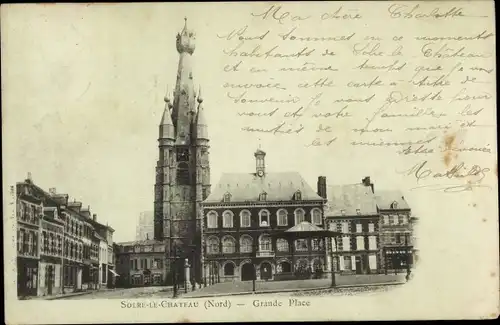 Ma chère Charlotte
Vous sommes en ce moments
habitants de Solre le Château
et en même temps que je vous
envoie cette carte à titre de
souvenir je vous prie pour
vous et votre famille les
amitiés de mon mari et
les miennes
Mathilde
SOLRE-LE-CHATEAU (Nord) — Grande Place